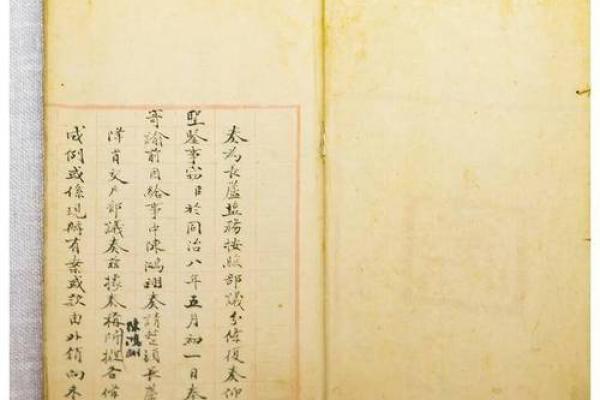 奏为長蘆塩務按照部議分條復奏仰
聖鑒事窃臣於同治八年五月初一日奉
寄諭前因給事中陳鴻翊奏請整頓長蘆
降旨交户部議奏兹據奏稱所擬各條
陳鴻翊
成例或係現辦有案或款由外銷向來